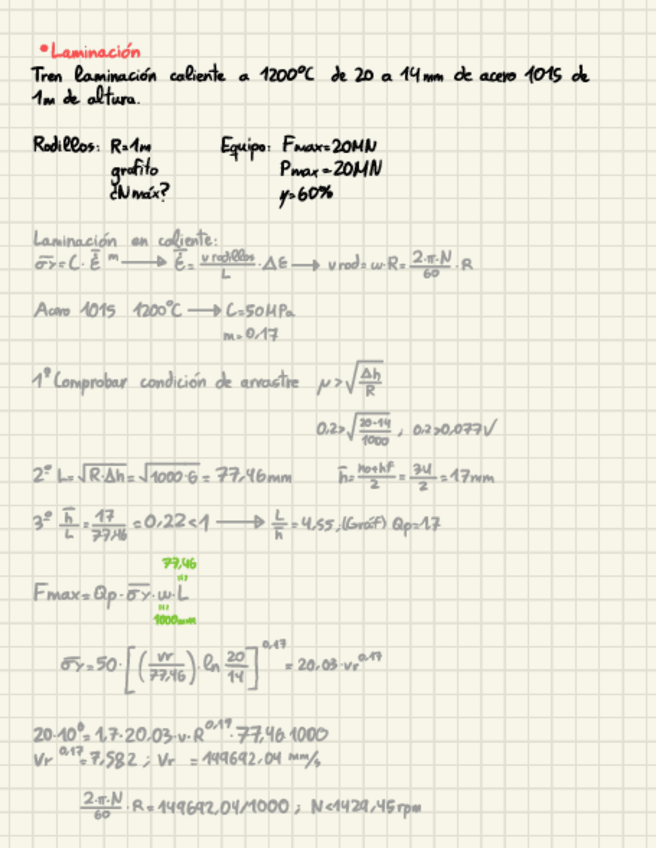 • Laminación
Tren laminación caliente a 1200°C de 20 a 14 mm de acero 1015 de
1m de altura.
Rodillos: R=1m Equipo: Fmax=20MN
grafito Pmax=20MN
¿N máx? η=60%
Laminación en caliente:
σy=C·ε̇^m → ε̇=(v rodillos/L)·Δε → v rod=ω·R=(2·π·N/60)·R
Acero 1015 1200°C → C=50MPa
m=0,17
1º Comprobar condición de arrastre μ>√(Δh/R)
0.2>√((20-14)/1000) ; 0.2>0,077√
2º L=√(R·Δh)=√(1000·6)=77,46mm h̄=(ho+hf)/2=34/2=17mm
3º h̄/L=17/77,46=0,22<1 → L/h̄=4,55;(Gráf) Qp=1.7
77,46
Fmax=Qp·σy·w·L
1000mm
σy=50·[(vr/77,46)·ln 20/14]^0,17=20,03·vr^0,17
20·10⁶=1,7·20.03·v·R^0,17·77,46·1000
Vr^0,17=7,582 ; Vr =149692,04 mm/s
(2·π·N/60)·R=149692,04/1000 ; N<1429,45rpm